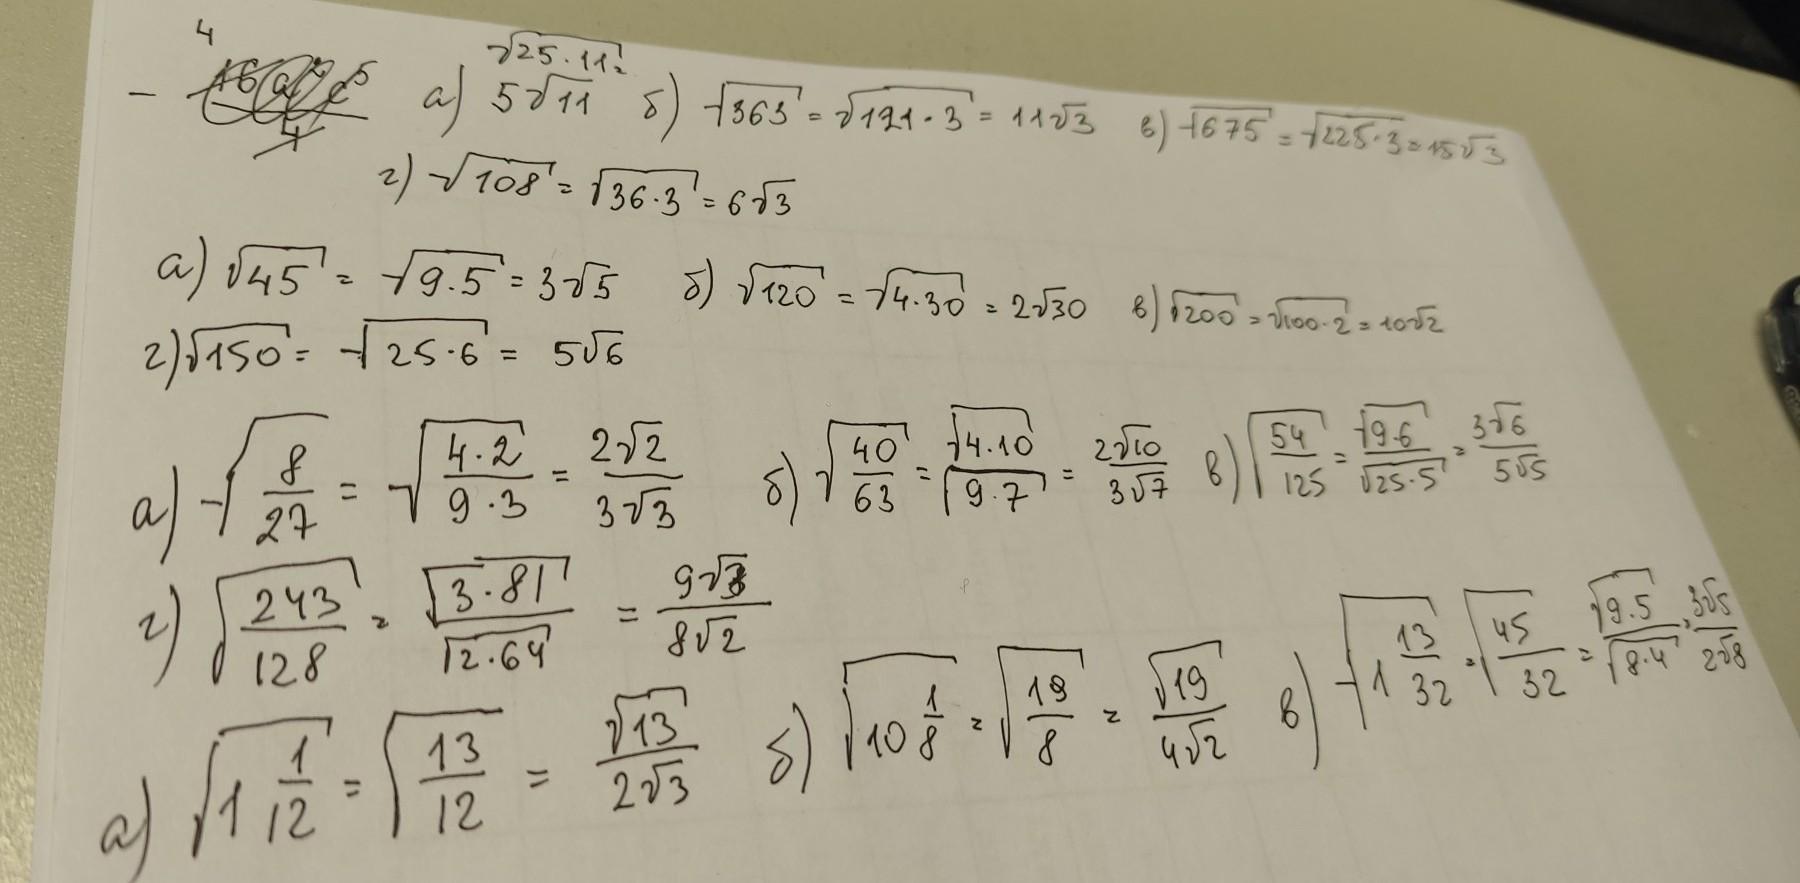 4
√25·11 =
- а) 5√11 б) √363 = √121·3 = 11√3 в) √675 = √225·3 = 15√3
г) √108 = √36·3 = 6√3
а) √45 = √9·5 = 3√5 б) √120 = √4·30 = 2√30 в) √200 = √100·2 = 10√2
г) √150 = √25·6 = 5√6
а) √8/27 = √4·2/9·3 = 2√2/3√3 б) √40/63 = √4·10/√9·7 = 2√10/3√7 в) √54/125 = √9·6/√25·5 = 3√6/5√5
г) √243/128 = √3·81/√2·64 = 9√3/8√2
а) √1 1/12 = √13/12 = √13/2√3 б) √10 1/8 = √19/8 = √19/4√2 в) √1 13/32 = √45/32 = √9·5/√8·4 = 3√5/2√8